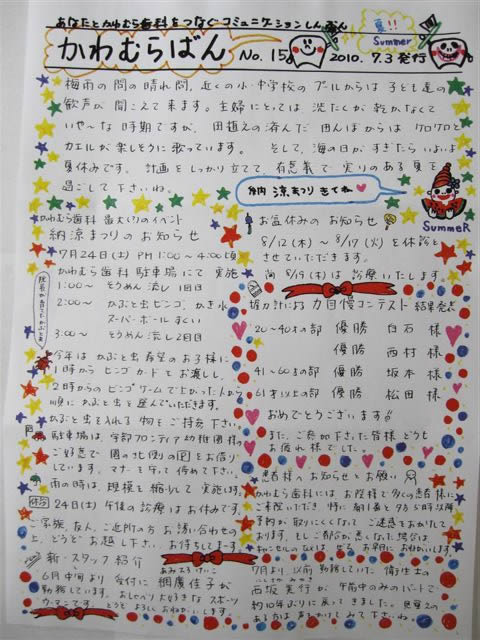 あなたとかわむら歯科をつなぐコミュニケーションしんぶん
かわむらばん
No.15
夏!!
Summer
2010.7.3発行
梅雨の間の晴れ間、近くの小・中学校のプールからは子ども達の
歓声が聞こえて来ます。主婦にとっては、洗たくが乾かなくて
いや〜な時期ですが、田植えの済んだ田んぼからはケロケロと
カエルが楽しそうに歌っています。そして、海の日がすぎたらいよいよ
夏休みです。計画をしっかり立てて、有意義で実りのある夏を
過ごして下さいね。
納涼まつりきてね
SummeR
かわむら歯科 最大くりのイベント
納涼まつりのお知らせ
7月24日(土) PM 1:00〜4:00頃
かわむら歯科駐車場にて実施
1:00〜 そうめん流し 1回目
2:00〜 かぶと虫ビンゴ、かき氷
スーパーボールすくい
3:00〜 そうめん流し2回目
今年はかぶと虫希望のお子様に
1時からビンゴカードをお渡しし、
2時からのビンゴゲームで上がった人から
順にかぶと虫を選んでいただきます。
かぶと虫を入れる物をご持参下さい。
駐車場は、宇部フロンティア幼稚園様の
ご好意で園のとなりの
をお借り
しています。マナーを守って停めて下さい。
雨の時は、規模を縮小して実施します。
24日(土)午後の診療はお休みです。
ご家族、友人、ご近所の方お誘い合わせの
上、どうぞお越し下さい。お待ちしてまーす。
新・スタッフ紹介
6月中旬より受付に網廣佳子が
勤務しています。おしゃべり大好きなスポーツ
ウーマンです。どうぞよろしくおねがいします。
お盆休みのお知らせ
8/12(木)〜8/17(火)を休診と
させていただきます。
尚8/19(木)は診療いたします。
握力計による力自慢コンテスト 結果発表
20〜40才の部 優勝 白石様
優勝 西村様
41〜60才の部 優勝 坂本様
61才以上の部 優勝 松田様
おめでとうございます!!
また、ご参加下さいた皆様どうも
お疲れ様でした。
患者様へお知らせとお願い
かわむら歯科にはお陰様で多くの患者様に
ご来院いただき、特に朝1番と夕方5時以降
予約が取りにくくなってご迷惑をおかけして
おります。そしてご都合が悪くなった場合は
7月より、以前勤務していた衛生士の
西坂実行が午前中のみのパートで
約10年ぶりに戻って来ました。見覚えの
ある方はあたたかく見て下さいね。